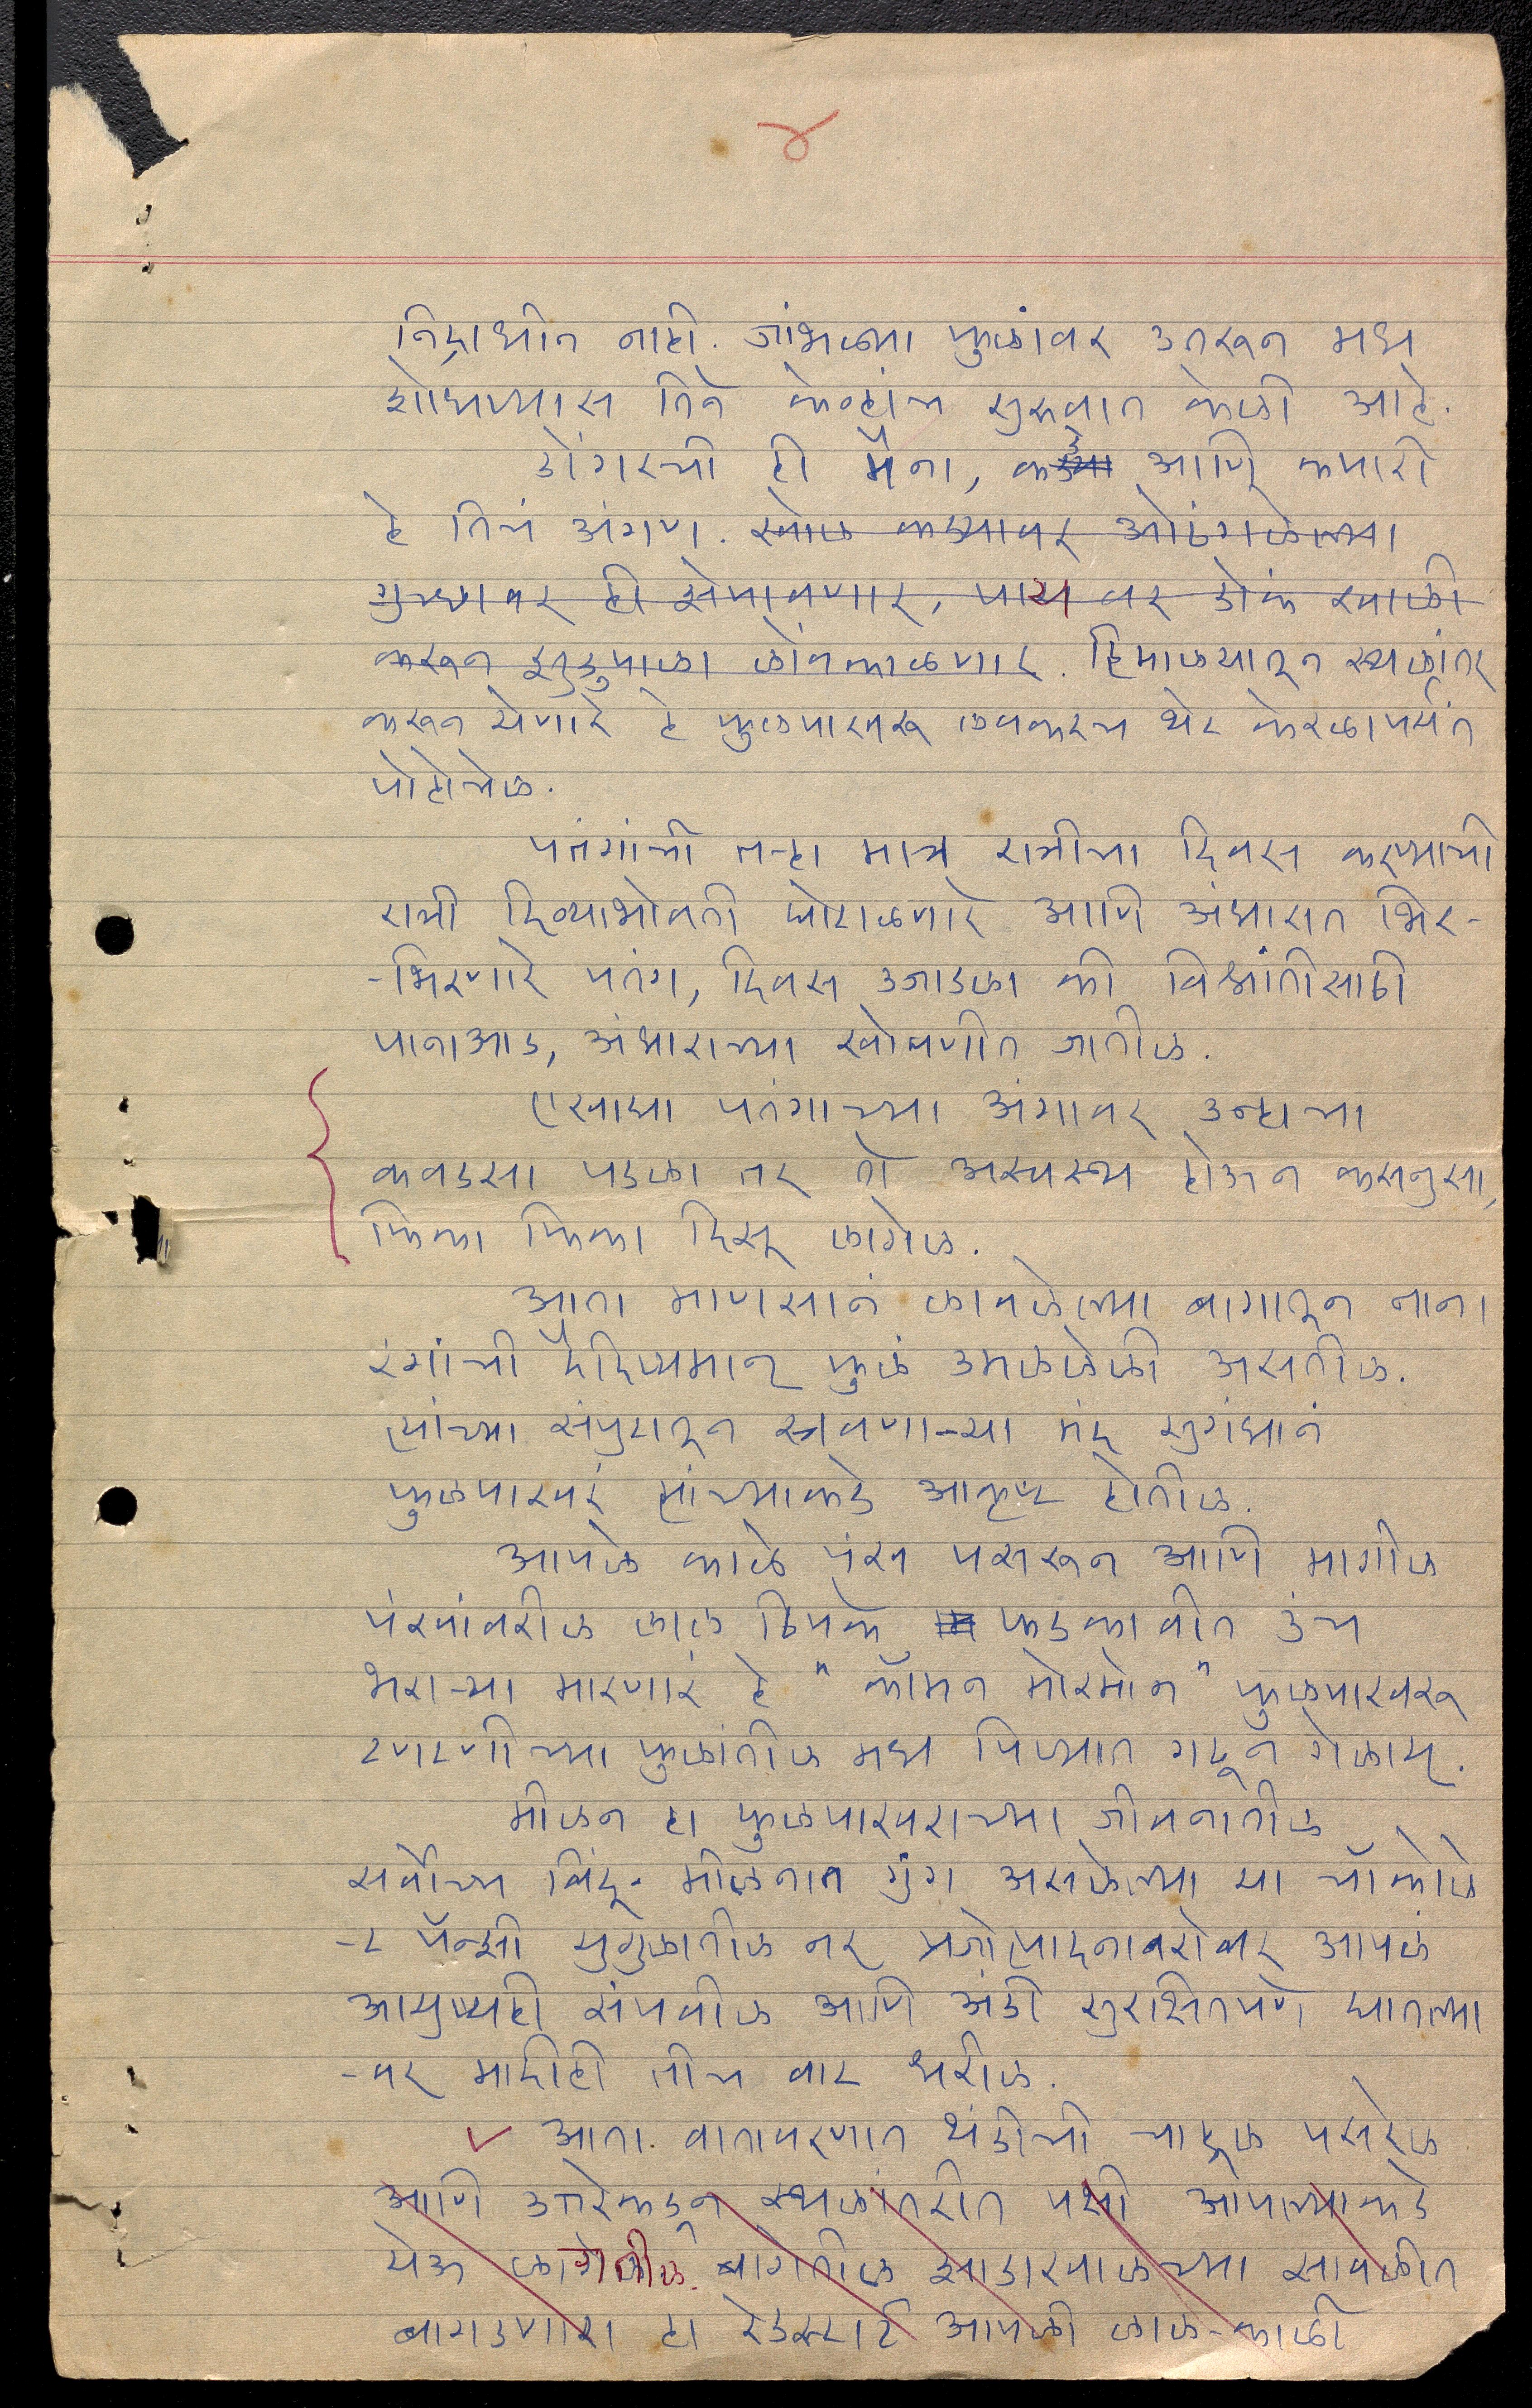 ४
निद्राधीन नाही. जांभळ्या फुलांवर उतरून मध
शोधण्यास तिने केव्हांच सुरुवात केली आहे.
डोंगरची ही मैना, कडे आणि कपारी
हे तिचं अंगण. खोल कड्यावर ओठंगलेल्या
झुडुपाला लोंबकाळणार. हिमालयातून स्थलांतर
करून येणारे हे फुलपाखरू लवकरच थेट केरळापर्यंत
पोहोचेल.
पतंगांची तऱ्हा मात्र रात्रीचा दिवस करण्याची
रात्री दिव्याभोवती घोटाळणारे आणि अंधारात भिर-
-भिरणारे पतंग, दिवस उजाडला की विश्रांतीसाठी
पानाआड, अंधाराच्या खोबणीत जातील.
एखाद्या पतंगाच्या अंगावर उन्हाचा
कवडसा पडला तर तो अस्वस्थ होऊन कसनुसा,
फिका फिका दिसू लागेल.
आता माणसानं लावलेल्या बागातून नाना
रंगांची दैदिप्यमान् फुलं उमललेली असतील.
त्यांच्या संपुटातून स्त्रवणाऱ्या मंद सुगंधानं
फुलपाखरं त्यांच्याकडे आकृष्ट होतील.
आपले काळे पंख पसरून आणि मागील
पंखांवरील लाल ठिपके फडकावीत उंच
भराऱ्या मारणारं हे "कॉमन मोरमोन" फुलपाखरू
टणटणीच्या फुलांतील मध पिण्यात गढून गेलाय.
मीलन हा फुलपाखराच्या जीवनातील
सर्वोच्च बिंदू. मीलनात गुंग असलेल्या या चॉकोले
-ट पॅन्सी युगुलातील नर प्रजोत्पादनाबरोबर आपलं
आयुष्यही संपवील आणि अंडी सुरक्षितपणे घातल्या
-वर मादीही तीच वाट धरील.
आता. वातावरणात थंडीची चाहूल पसरेल
आणि उत्तरेकडून स्थलांतरीत पक्षी आपल्याकडे
येऊ लागतील. बागेतील झाडाखालच्या सावलीत
बागडणारा हा रेडस्टार्ट आपली लाल-काळी